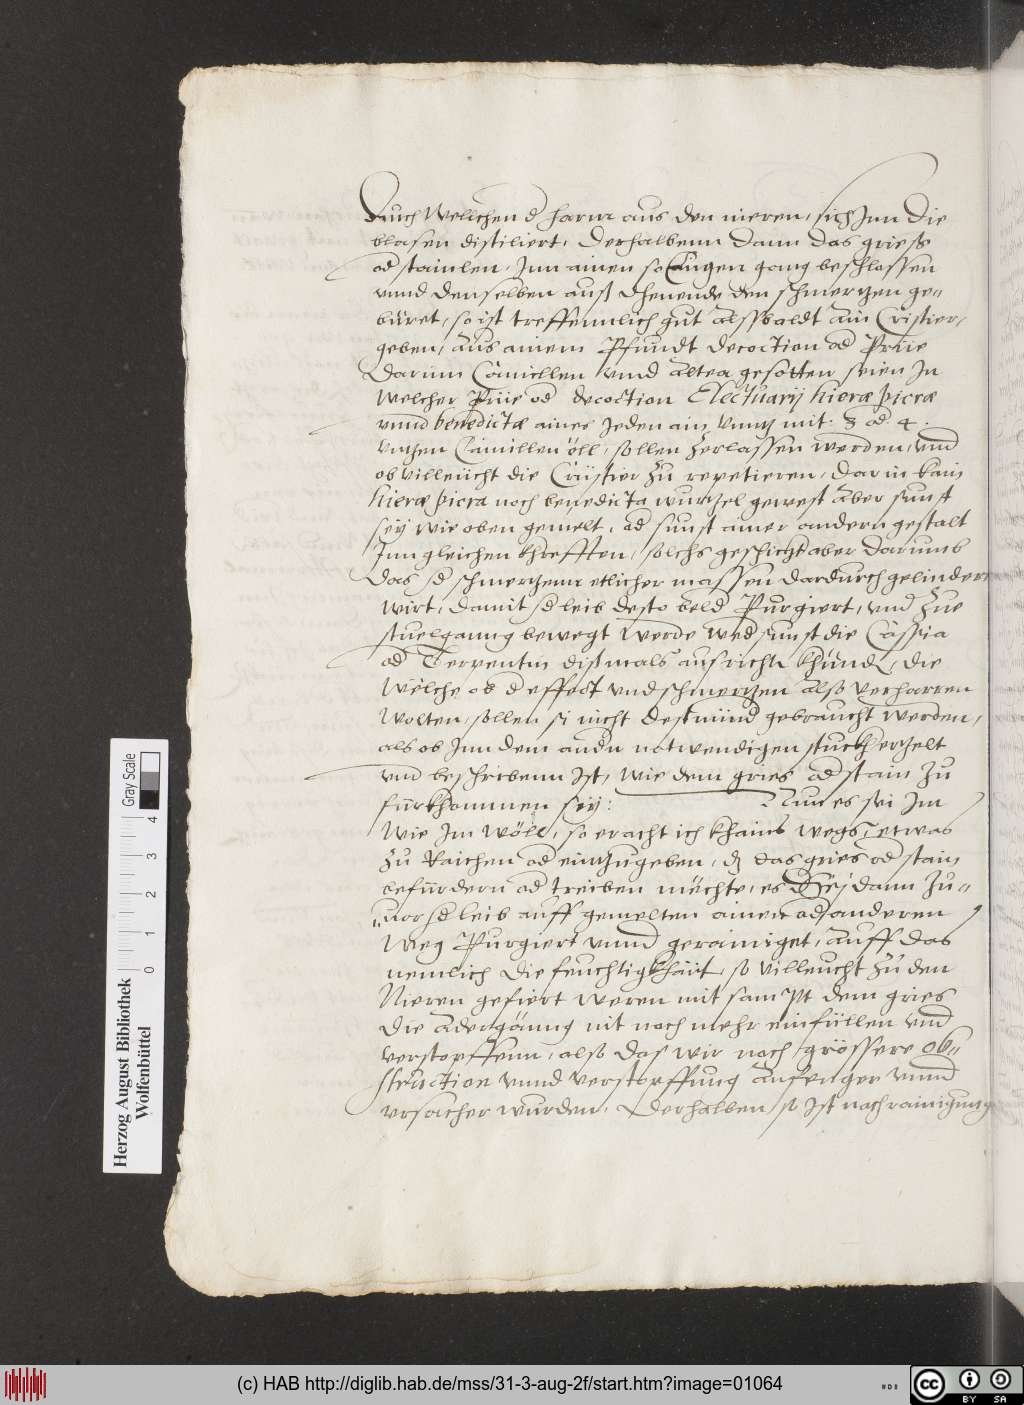 durch Wellichen d harm aus den nieren, sich Jnn die
blasen distiliert, Derhalbenn dann das grieß
od stainlen, Jnn ainen so Langen gang beschlossen
vnnd denselben auß dhenende den schmertzen ge-
büret, so ist treffennlich gut alssbaldt ain Cristier,
geben, aus ainem Pfundt decoction od Prüe
darinn Camillen vnnd altea gesotten seien Jn
welcher Prüe od decoction Electuarij hieræ picræ
vnnd benedictæ aines Jeden ain vnntz mit 3 od 4.
vntzen Camillen öll, sollen zerlassen werden, vnd
ob villeücht die Cristier zu repetieren, darin kain
hieræ picra noch benedicta wurtzel gewest aber sunst
sey wie oben gemelt, od sunst ainer andern gestalt
Jnn gleichen khrefften, solchs geschicht aber darumb
das d schmertzenn etlicher massen dardurch gelindert
wirt, damit d leib desto beld Purgiert, vnd zue
stuelganng bewegt werde wed sunst die Cassia
od Terpentin distmals ausrichtn khündn, die
Welche ob d effect vnd schmertzen also verharren
wolten, sollen si nicht destmünd gebraucht werden,
als ob Jnn dem andn notwendigen stuckh ertzelt
vnd beschribenn ist, wie dem gries od stain zu
fürkhommen sey: Nun es sei Jm
wie Jm wöll, so eracht ich khains wegs, etwas
zu Raichen od eintzugeben, dz das gries od stain
befürdern od treiben möchte, es sey dann zu-
uor d leib auff gemelten ainen od anderen
weg Purgiert vnnd gerainiget, auff das
nemlich die feuchtigkhait, so villeucht zu den
Nieren gefiert weren mit sampt dem gries
die adergänng nit noch mehr einfüllen vnd
verstopffenn, also das wir noch grössere ob-
struction vnnd verstopffung anfenger vnnd
vrsacher wurden, Derhalben so ist nach rainigung
Herzog August Bibliothek
Wolfenbüttel
0 1 2 3 4
Gray Scale
(c) HAB http://diglib.hab.de/mss/31-3-aug-2f/start.htm?image=01064
CC BY SA